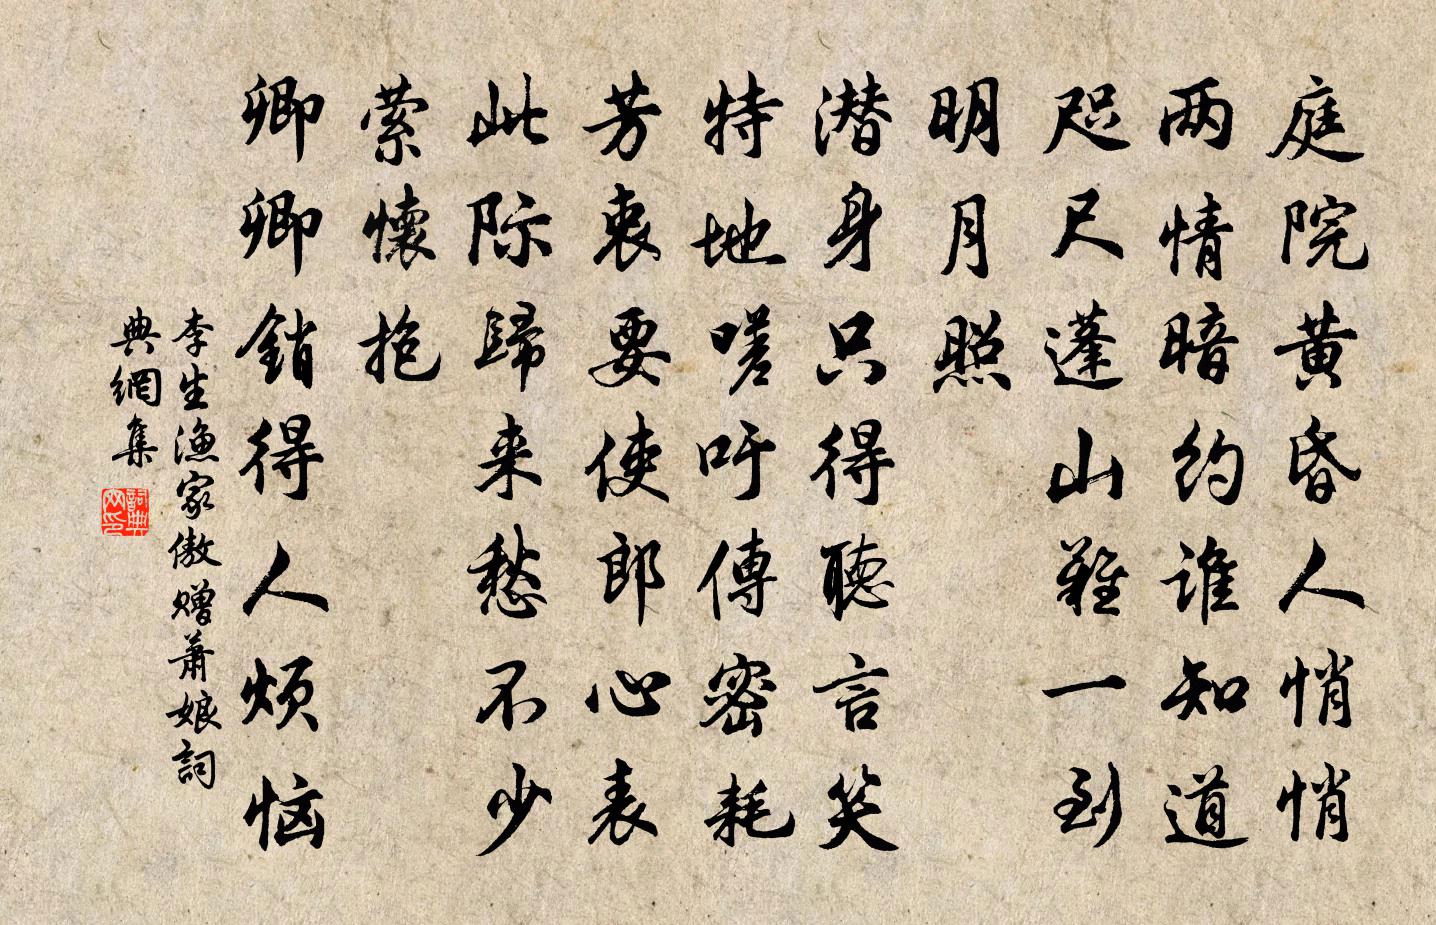 庭院黄昏人悄悄
两情暗约谁知道
咫尺蓬山難一到
明月照
潜身只得聽言笑
特地嗟吁傳密耗
芳衷要使郎心表
此际歸来愁不少
萦懷抱
卿卿銷得人烦恼
李生渔家傲赠萧娘詞
典網集
詞典网印